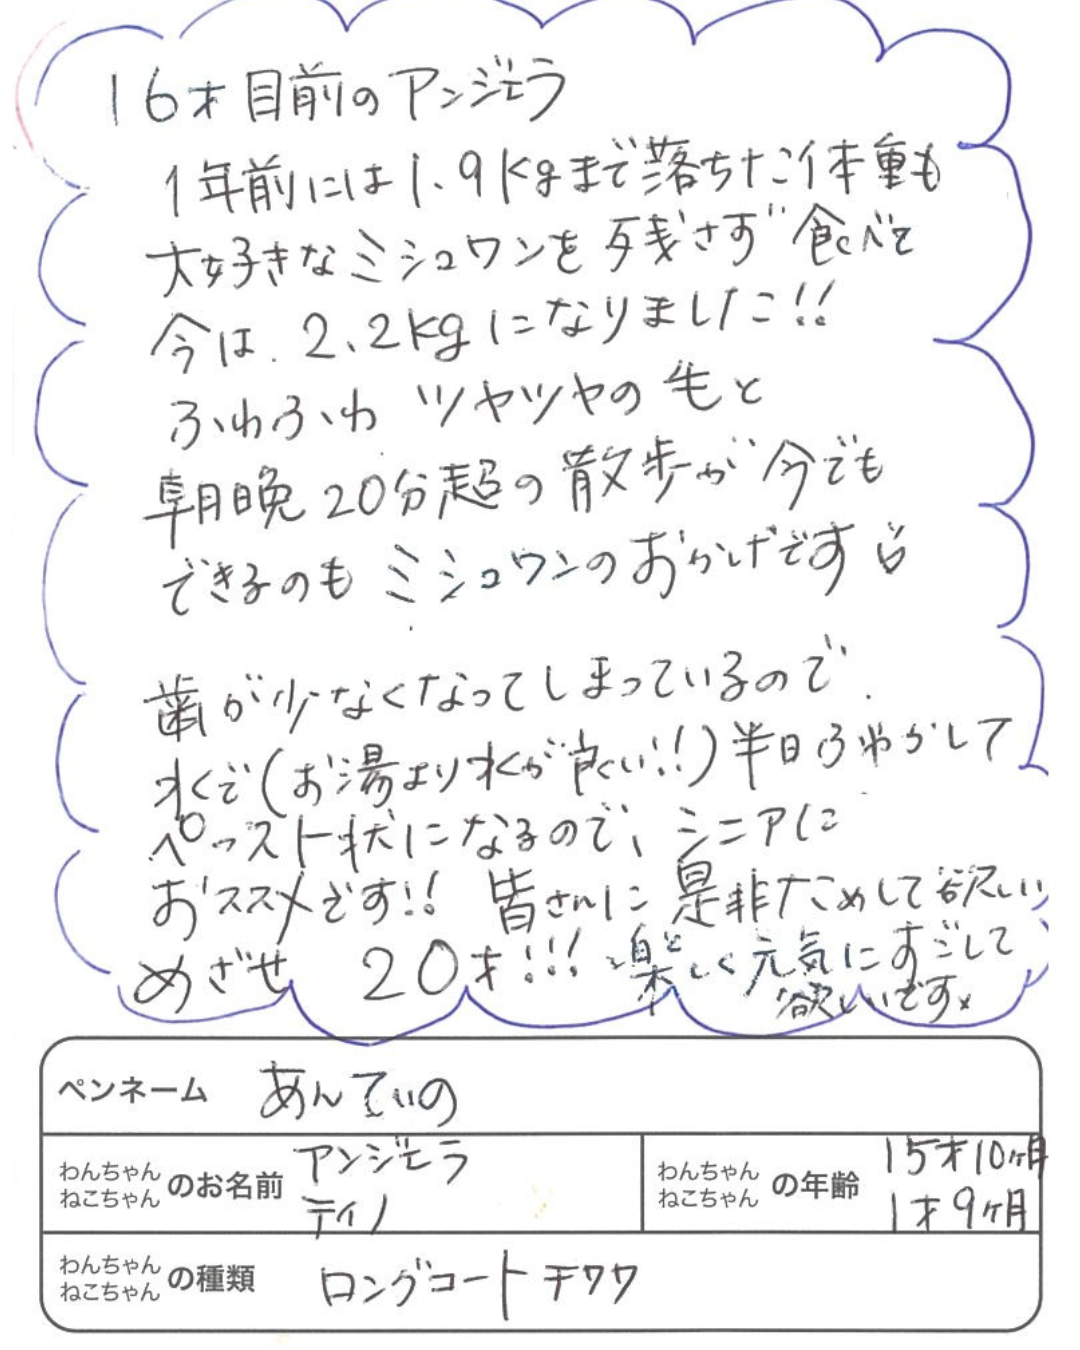 16才目前のアンジェラ
1年前には1.9kgまで落ちた体重も
大好きなミシュワンを残さず食べて
今は、2.2kgになりました!!
ふわふわ ツヤツヤの毛と
朝晩20分超の散歩が今でも
できるのもミシュワンのおかげです♡
歯が少なくなってしまっているので、
水で(お湯より水が良い!!)半日ふやかして
ペースト状になるので、シニアに
おススメです!! 皆さんに是非ためして欲しい
めざせ 20才!!! 楽しく元気にすごして
欲しいです。
ペンネーム あんてぃの
わんちゃん
ねこちゃん のお名前 アンジェラ
ティノ
わんちゃん
ねこちゃん の年齢 15才10ヶ月
1才9ヶ月
わんちゃん
ねこちゃん の種類 ロングコートチワワ